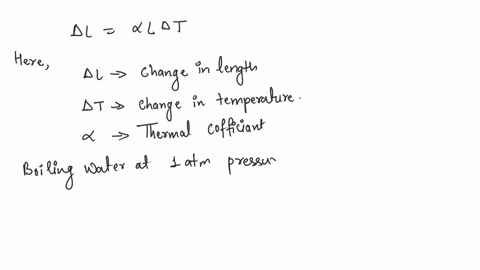 ΔL = αLΔT
Here,
ΔL → Change in length
ΔT → Change in temperature.
α → Thermal Cofficiant
Boiling Water at 1 atm pressur